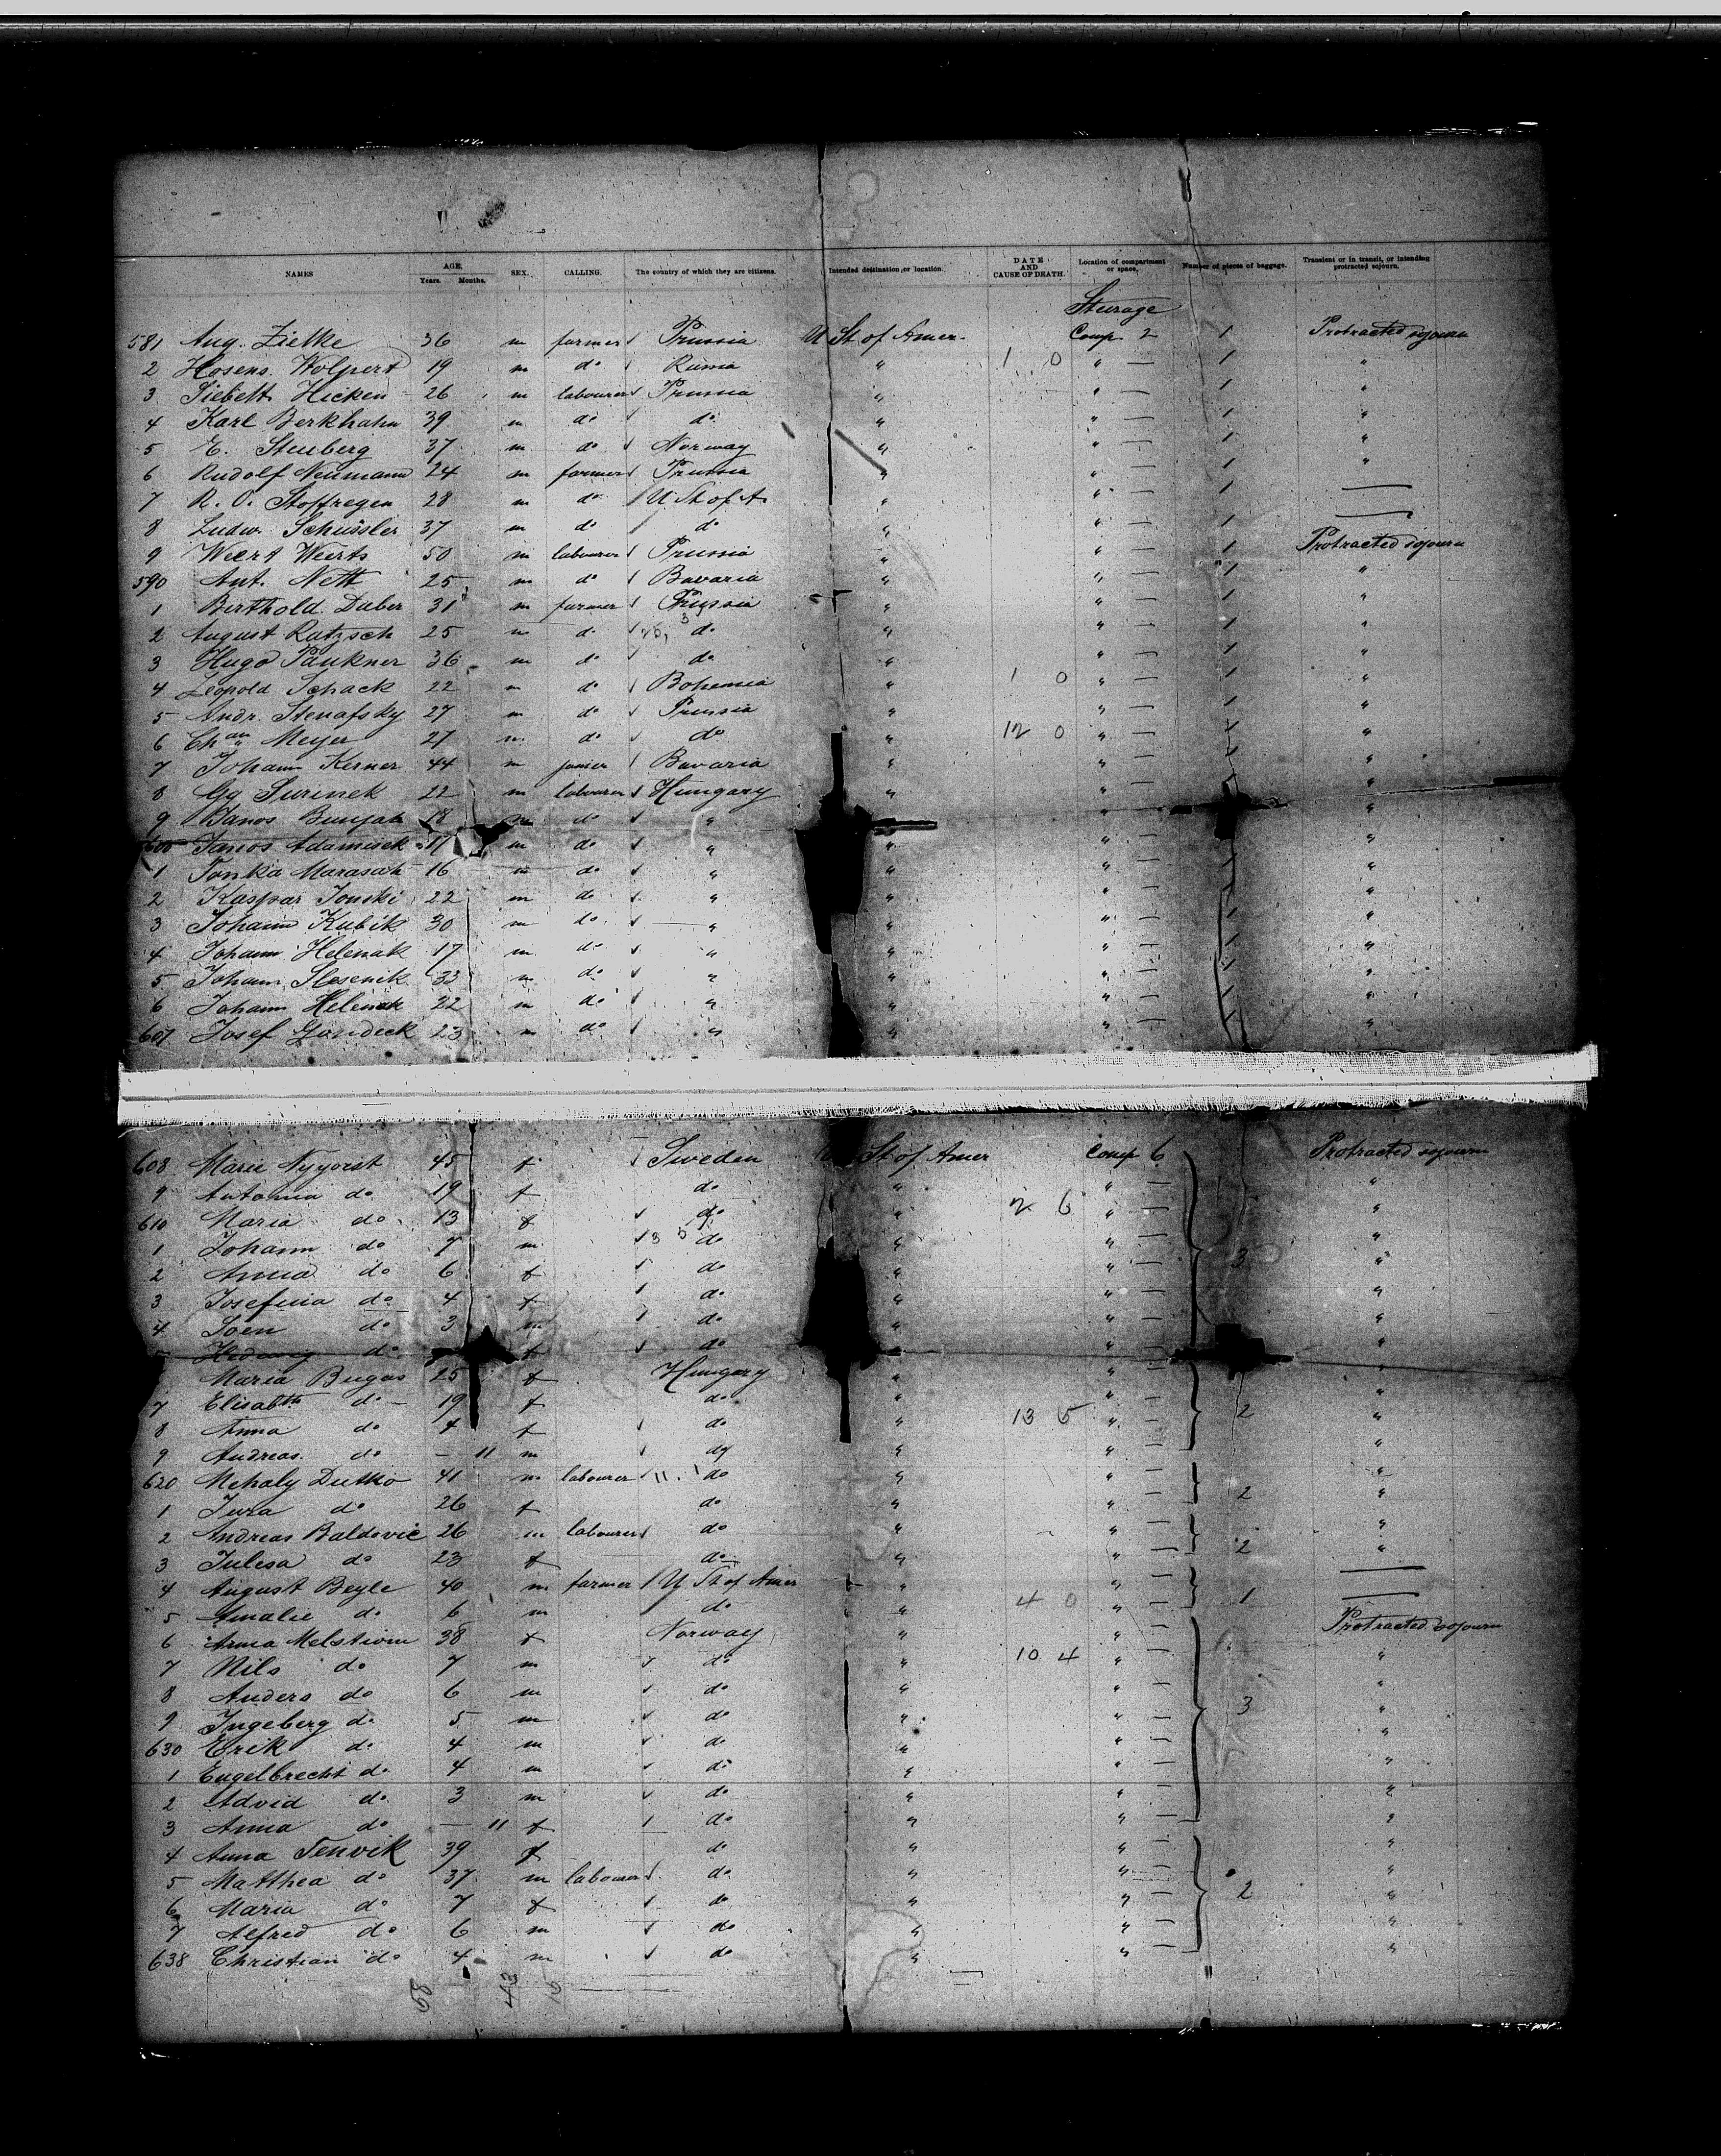 NAMES AGE. Years. Months. SEX. CALLING. The country of which they are citizens. Intended destination or location. DATE AND CAUSE OF DEATH. Location of compartment or space. Number of pieces of baggage. Transient or in transit, or intending protracted sojourn.
Steerage
581 Aug. Zielke 36 m farmer Prussia U St of Amer. Comp 2 1 Protracted sojourn
2 Hosens. Wolpert 19 m do Russia " 1 0 " — 1 "
3 Siebelt Hicken 26 m labourer Prussia " " — 1 "
4 Karl Berkhahn 39 m do do " " — 1 "
5 E. Stenberg 37 m do Norway " " — 1 "
6 Rudolf Neumann 24 m farmer Prussia " " — 1 "
7 R. O. Stoffregen 28 m do U St of A. " " — 1 —
8 Ludw. Schüssler 37 m do do " " — 1 —
9 Weert Weerts 50 m labourer Prussia " " — 1 Protracted sojourn
590 Ant. Nett 25 m do Bavaria " " — 1 "
1 Berthold Daber 31 m farmer Prussia " " — 1 "
2 August Ratzsch 25 m do do " " — 1 "
3 Hugo Paukner 36 m do do " " — 1 "
4 Leopold Schack 22 m do Bohemia " 1 0 " — 1 "
5 Andr. Stenafsky 27 m do Prussia " " — 1 "
6 Chan Meyer 27 m do do " 12 0 " — 1 "
7 Johann Kerner 44 m Bavaria " " — 1 "
8 Gg Surinek 22 m labourer Hungary " " — "
9 Janos Bunjak 18 m do " " " — "
600 Janos Adamisek 17 m do " " " — "
1 Tonka Marasat 16 m do " " " — 1 "
2 Kaspar Tonski 22 m do " " " — 1 "
3 Johann Kubik 30 m do " " " — 1 "
4 Johann Helenak 17 m do " " " — 1 "
5 Johann Slesenik 33 m do " " " — 1 "
6 Johann Helenak 22 m do " " " — 1 "
607 Josef Gondeck 23 m do " " " — 1 "
608 Marie Nyqvist 45 f Sweden St of Amer Comp 6 Protracted sojourn
9 Antonia do 19 f do " " — "
610 Maria do 13 f do " 2 6 " — "
1 Johann do 7 m 3 5 do " " — 3 "
2 Anna do 6 f do " " — "
3 Josefina do 4 f do " " — "
4 Joen do 3 m do " " — "
5 Hedwig do f do " — "
Maria Bugas 25 f Hungary " " — "
7 Elisabth do 19 f do " " — 2 "
8 Anna do 4 f do " 13 5 " — "
9 Andreas do — 11 m do " " — "
620 Mehaly Dutko 41 m labourer 11. 1 do " " — "
1 Jura do 26 f do " " — 2 "
2 Andreas Baldovic 26 m labourer do " " — "
3 Julesa do 23 f do " " — 2 "
4 August Beyle 40 m farmer U St of Amer " " — —
5 Amalie do 6 m do " 4 0 " — 1 —
6 Anna Melstrom 38 f Norway " " — Protracted sojourn
7 Nils do 7 m do " 10 4 " — "
8 Anders do 6 m do " " — "
9 Ingeberg do 5 m do " " — 3 "
630 Erik do 4 m do " " — "
1 Engelbrecht do 4 m do " " — "
2 Advid do 3 m do " " — "
3 Anna do — 11 f do " " — "
4 Anna Tenvik 39 f do " " — "
5 Matthea do 37 m labourer do " " — "
6 Maria do 7 f do " " — 2 "
7 Alfred do 6 m do " " — "
638 Christian do 4 m do " " — "
58 43 15